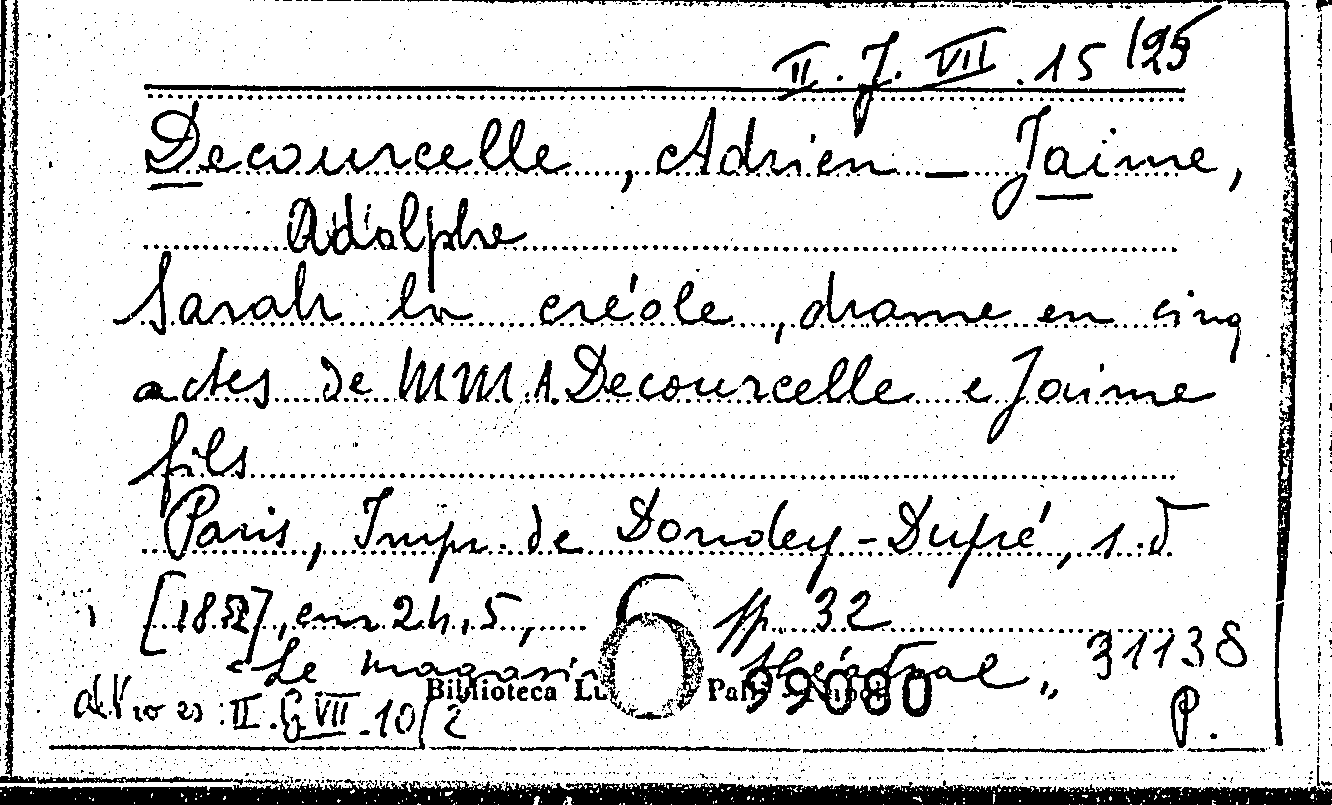 II. J. VII. 15 /25
Decourcelle, Adrien - Jaime,
Adolphe
Sarah la créole, drame en cinq
actes de MM A. Decourcelle e Jaime
fils
Paris, Imp. de Dondey-Dupré, s.d
[1852], cm 24,5, pp. 32
"Le magasin théâtral" 31138
Biblioteca 99080
altro es: II. G. VII. 10/2 P.